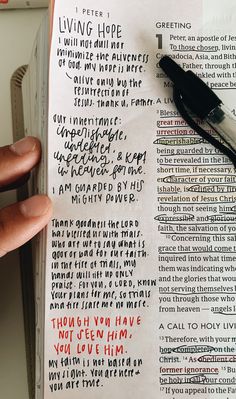 1 PETER 1
LIVING HOPE
I will not dull nor
minimize the aliveness
of God. my hope is here.
alive only by the
resurrection of
Jesus. thank u, Father.
our inheritance:
imperishable,
undefiled,
unfading, & kept
in heaven for me.
I AM GUARDED BY HIS
MIGHTY POWER.
Thank goodness the LORD
has blessed us with trials.
Who are we to say what is
good or bad for our faith.
in the fire of trials, my
hands will lift up only
praise. For you, O LORD, know
your plans for me, so trials
and fire scare me no more.
THOUGH YOU HAVE
NOT SEEN HIM,
YOU LOVE HIM.
My faith is not based on
my sight. You are here &
you are true.
GREETING
1 Peter, an apostle of Jes
To those chosen, living
padocia, Asia, and Bith
God the Father, through
great me
urrection o
imperishable
guarde
to be revealed in the la
short time, if necessary,
character of your faith
ishable, is refined by fire
revelation of Jesus Chris
though not seeing him
pressible and glorious
faith, the salvation of y
10 Concerning this sal
grace that would come t
inquired into what time
them was indicating wh
and the glories that woul
not serving themselves b
you through those who
from heaven — angels l
A CALL TO HOLY LIVI
13 Therefore, with your m
hope completely on the
Christ. 14 As obedient c
former ignorance. 15 But
be holy in all your cond
17 If you appeal to the Fath